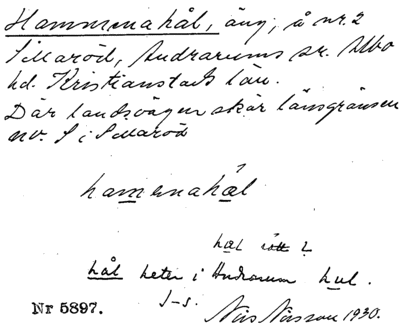 Hammenahål, äng, å nr. 2
Sillaröd, Andrarums sn. Albo
hd. Kristianstads län.
Där landsvägen skär länsgränsen
nv. S i Sillaröd
hamenahål
hæl rätt?
hål heter i Andrarum hul.
J-s.
Nr 5897. Nils Nilsson 1930.